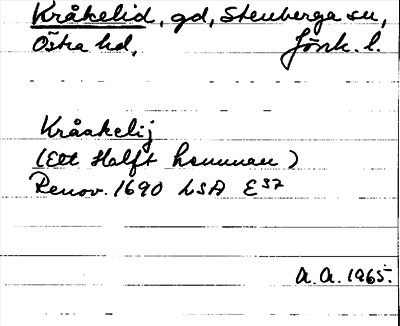 Kråkelid, gd, Stenberga sn,
Östra hd, Jönk. l.
Kråakelij
(Ett Halft hemman)
Renov. 1690 LSA E37
A. A. 1965.